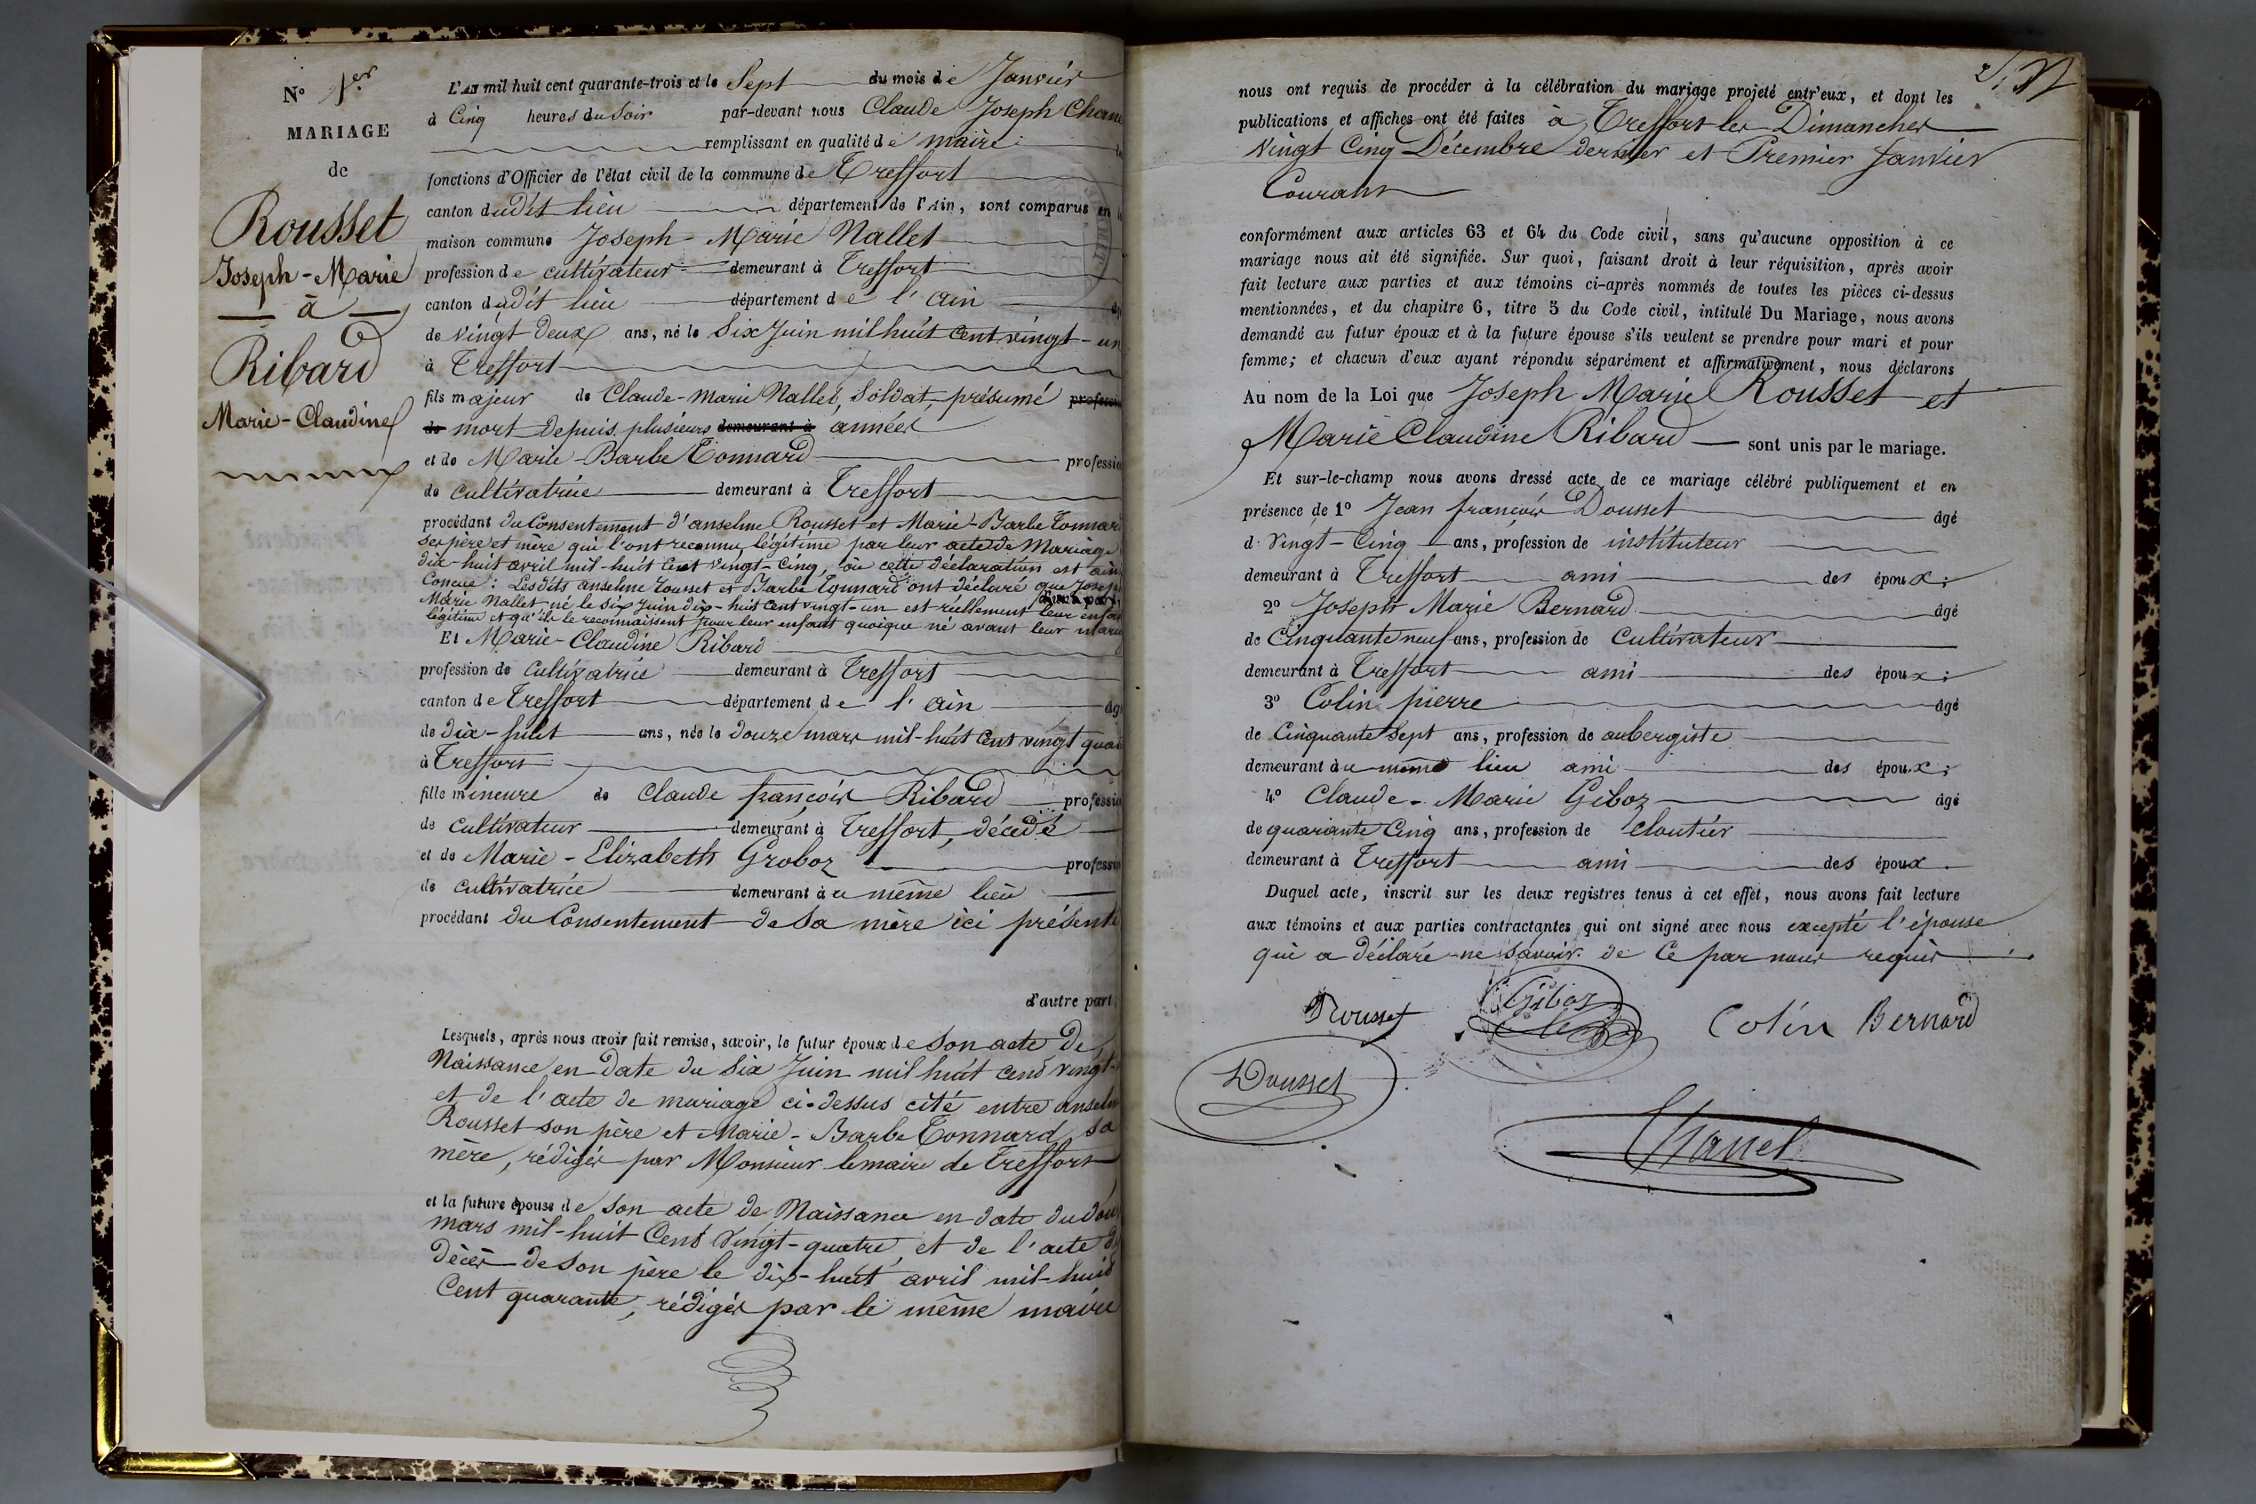 N° 1er
MARIAGE
de
Rousset
Joseph-Marie
à
Ribard
Marie-Claudine
L'AN mil huit cent quarante-trois et le Sept du mois de Janvier
à Cinq heures du Soir par-devant nous Claude Joseph
remplissant en qualité de maire
fonctions d'Officier de l'état civil de la commune de Treffort
canton dudit lieu département de l'Ain, sont comparus en
maison commune Joseph-Marie Nallet
profession de cultivateur demeurant à Treffort
canton dudit lieu département de l'ain
de vingt deux ans, né le Six Juin mil huit cent vingt-un
à Treffort
fils majeur de Claude-Marie Nallet, Soldat, présumé
de mort depuis plusieurs demeurant à années
et de Marie-Barbe Tonnard profession
de cultivatrice demeurant à Treffort
procédant du Consentement d'anselme Rousset et Marie-Barbe Tonnard
Ses père et mère qui l'ont reconnu légitime par leur acte de Mariage
dix-huit avril mil-huit Cent vingt-Cinq, où cette déclaration est
Concue: Lesdits anselme Rousset et Barbe Tonnard ont déclaré que Joseph
Marie Nallet né le six Juin dix-huit Cent vingt-un est réellement leur enfant
légitime et qu'ils le reconnaissent pour leur enfant quoique né avant leur
Et Marie-Claudine Ribard
profession de Cultivatrice demeurant à Treffort
canton de Treffort département de l'ain
de Dix-huit ans, née le Douze mars mil-huit Cent vingt
à Treffort
fille mineure de Claude françois Ribard profession
de Cultivateur demeurant à Treffort, décédé
et de Marie-Elizabeth Groboz profession
de cultivatrice demeurant au même lieu
procédant du Consentement de Sa mère ici présente
d'autre part
Lesquels, après nous avoir fait remise, savoir, le futur époux de Son acte de
Naissance en date du Six Juin mil huit cent vingt-
et de l'acte de mariage ci-dessus cité entre
Rousset son père et Marie-Barbe Tonnard sa
mère, rédigés par Monsieur le maire de Treffort
et la future épouse de Son acte de Naissance en date du
mars mil-huit Cent Vingt-quatre, et de l'acte de
Décès de Son père le dix-huit avril mil-huit
Cent quarante, rédigés par le même maire
nous ont requis de procéder à la célébration du mariage projeté entr'eux, et dont les
publications et affiches ont été faites à Treffort les Dimanches
Vingt Cinq Décembre dernier et Premier Janvier
Courant
conformément aux articles 63 et 64 du Code civil, sans qu'aucune opposition à ce
mariage nous ait été signifiée. Sur quoi, faisant droit à leur réquisition, après avoir
fait lecture aux parties et aux témoins ci-après nommés de toutes les pièces ci-dessus
mentionnées, et du chapitre 6, titre 5 du Code civil, intitulé Du Mariage, nous avons
demandé au futur époux et à la future épouse s'ils veulent se prendre pour mari et pour
femme; et chacun d'eux ayant répondu séparément et affirmativement, nous déclarons
Au nom de la Loi que Joseph Marie Rousset et
Marie Claudine Ribard sont unis par le mariage.
Et sur-le-champ nous avons dressé acte de ce mariage célébré publiquement et en
présence de 1° Jean françois Dousset âgé
d Vingt-Cinq ans, profession de instituteur
demeurant à Treffort ami des époux;
2° Joseph Marie Bernard âgé
de Cinquante neuf ans, profession de Cultivateur
demeurant à Treffort ami des époux;
3° Colin pierre âgé
de Cinquante Sept ans, profession de aubergiste
demeurant au même lieu ami des époux;
4° Claude-Marie Giboz âgé
de quarante Cinq ans, profession de Cloutier
demeurant à Treffort ami des époux.
Duquel acte, inscrit sur les deux registres tenus à cet effet, nous avons fait lecture
aux témoins et aux parties contractantes qui ont signé avec nous excepté l'épouse
qui a déclaré ne savoir de Ce par nous requis
Rousset Giboz Colin Bernard
Dousset
Chanel